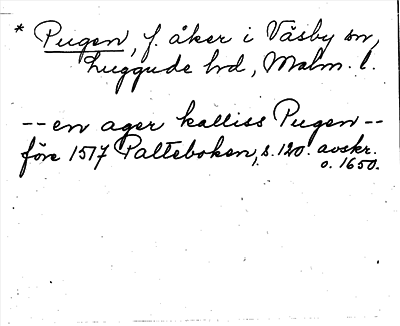 * Pugen, f. åker i Väsby sn,
Luggude hd, Malm. l.
-- en ager kalliss Pugen --
före 1517 Palteboken, s. 120. avskr.
o. 1650.